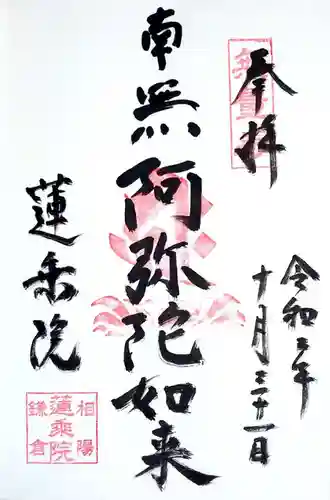 奉拝
令和三年
十月三十一日
南無阿弥陀如来
蓮乗院
相陽
蓮乗院
鎌倉